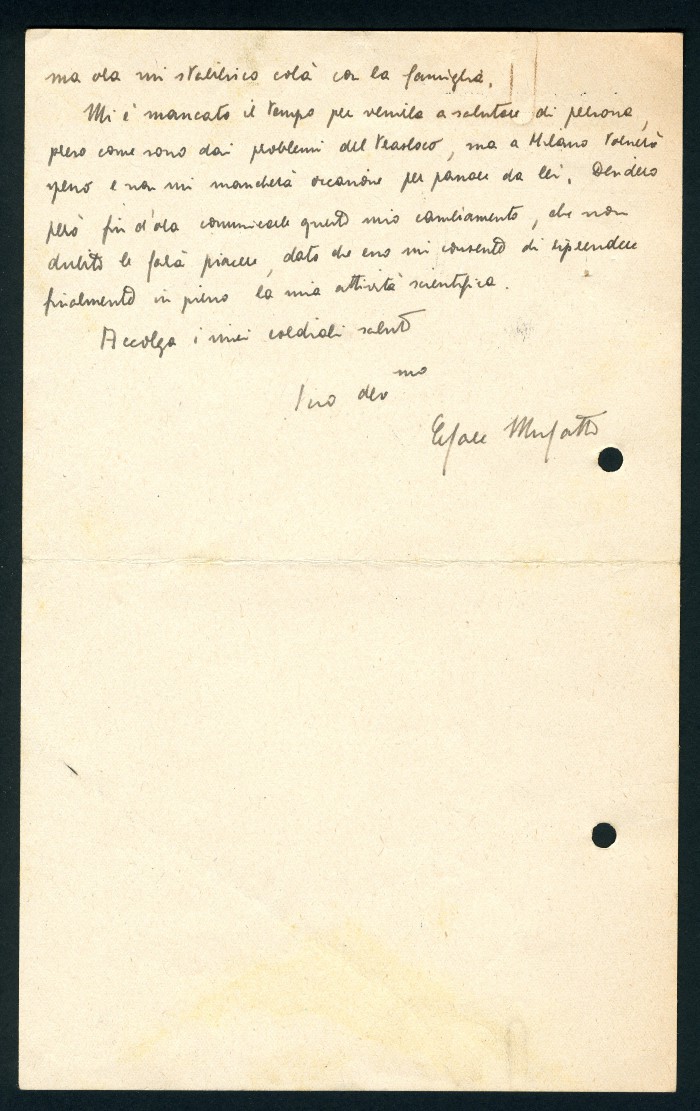 ma ora mi stabilisco colà con la famiglia.
Mi è mancato il tempo per venirla a salutare di persona,
preso come sono dai problemi del trasloco, ma a Milano tornerò
spesso e non mi mancherà occasione per passare da lei. Desidero
però fin d'ora comunicarle questo mio cambiamento, che non
dubito le farà piacere, dato che esso mi consente di riprendere
finalmente in pieno la mia attività scientifica.
Accolga i miei cordiali saluti
Suo dev mo
Cesare Musatti